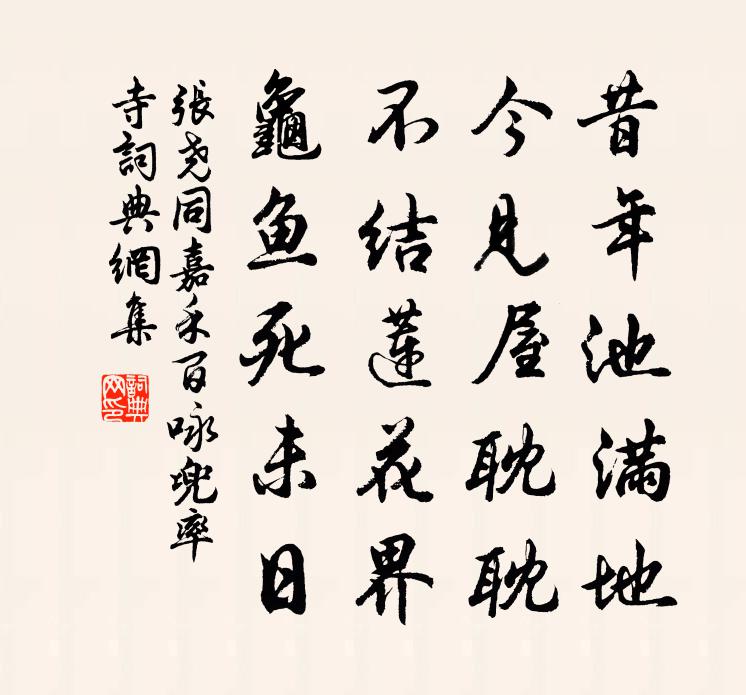 昔年池满地
今見屋耽耽
不结蓮花界
龜鱼死未日
張尧同嘉禾百咏兜率
寺詞典網集
詞典網印